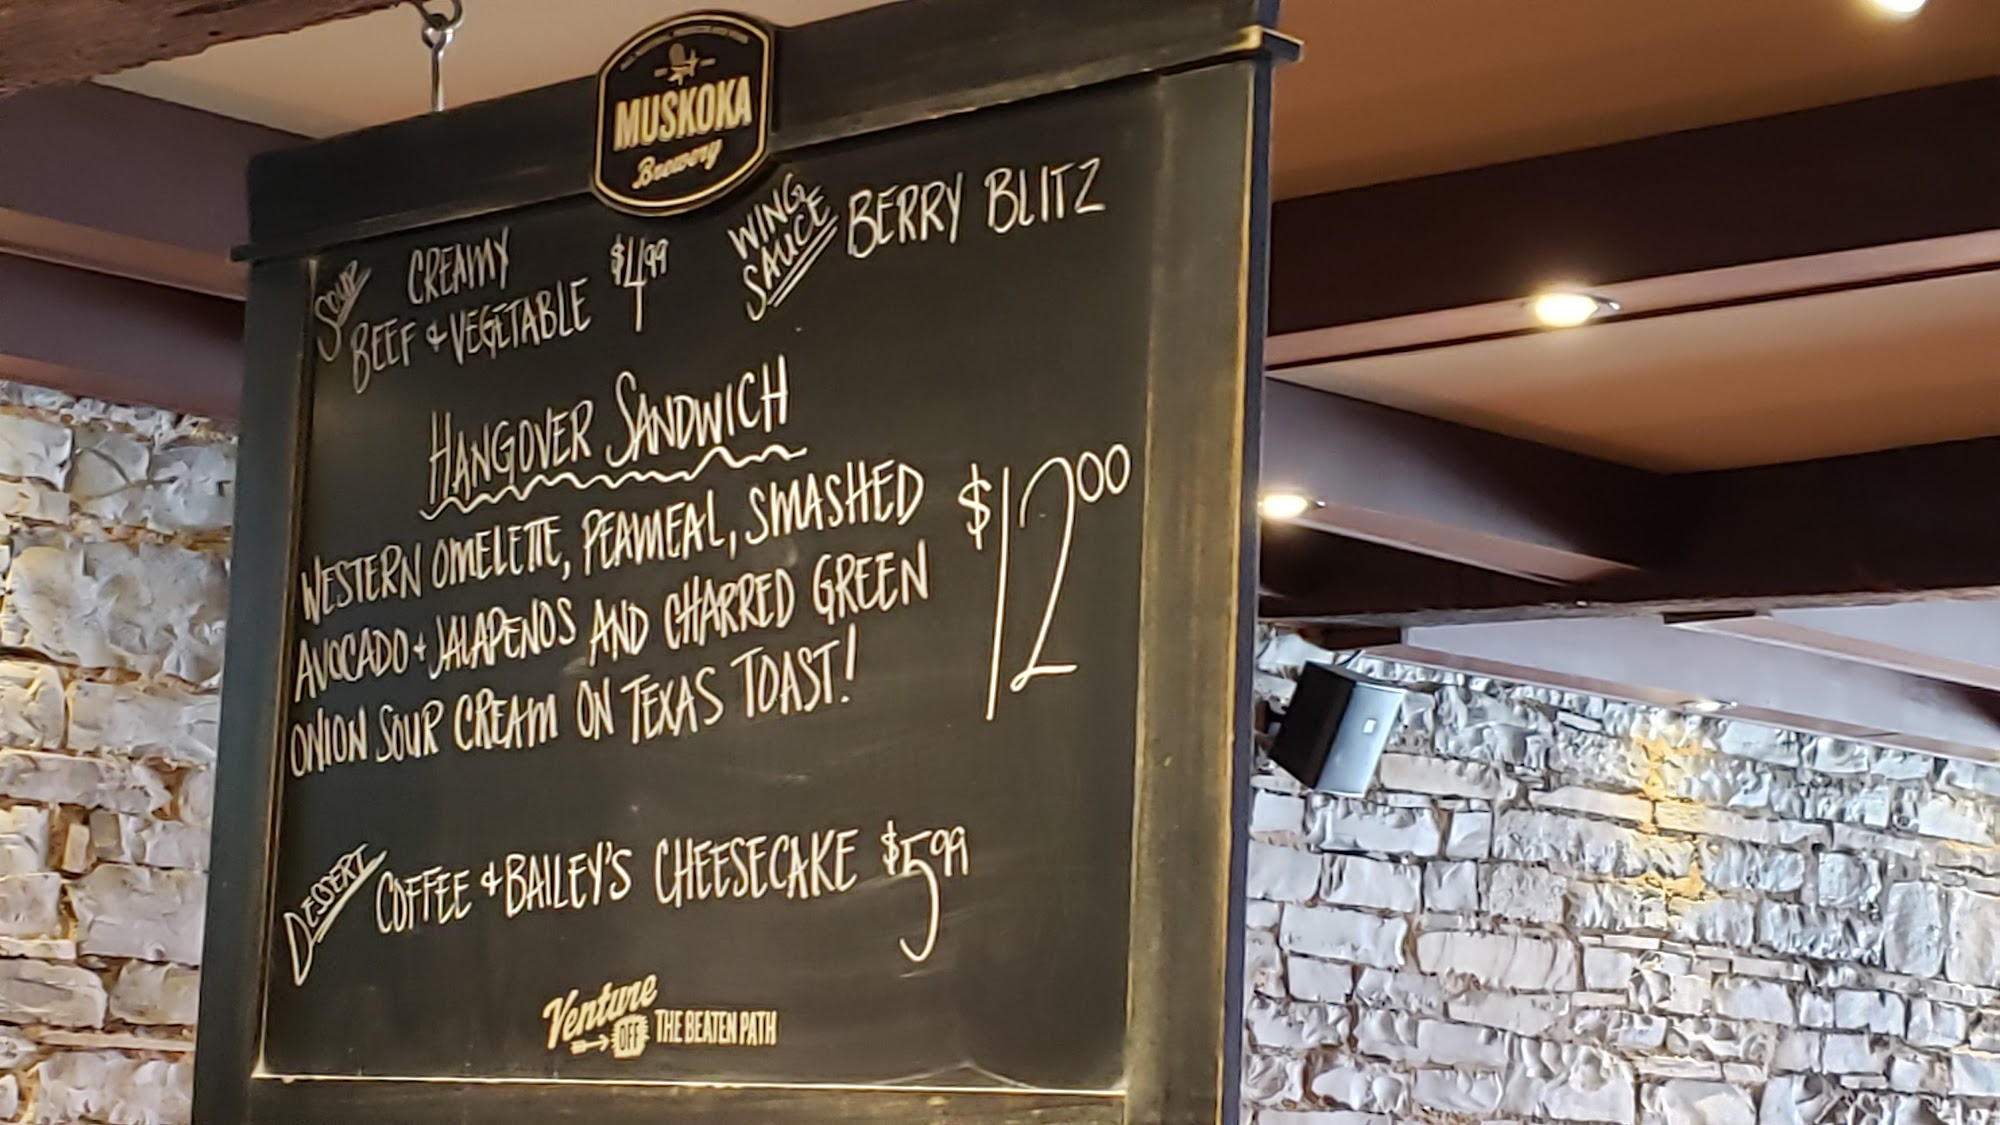 MUSKOKA
Brewery
SOUP
CREAMY
BEEF & VEGETABLE $4.99
WING
SAUCE
BERRY BLITZ
HANGOVER SANDWICH
WESTERN OMELETTE, PEAMEAL, SMASHED
AVOCADO & JALAPENOS AND CHARRED GREEN
ONION SOUR CREAM ON TEXAS TOAST!
$12.00
DESSERT
COFFEE & BAILEY'S CHEESECAKE $5.99
Venture
OFF THE BEATEN PATH